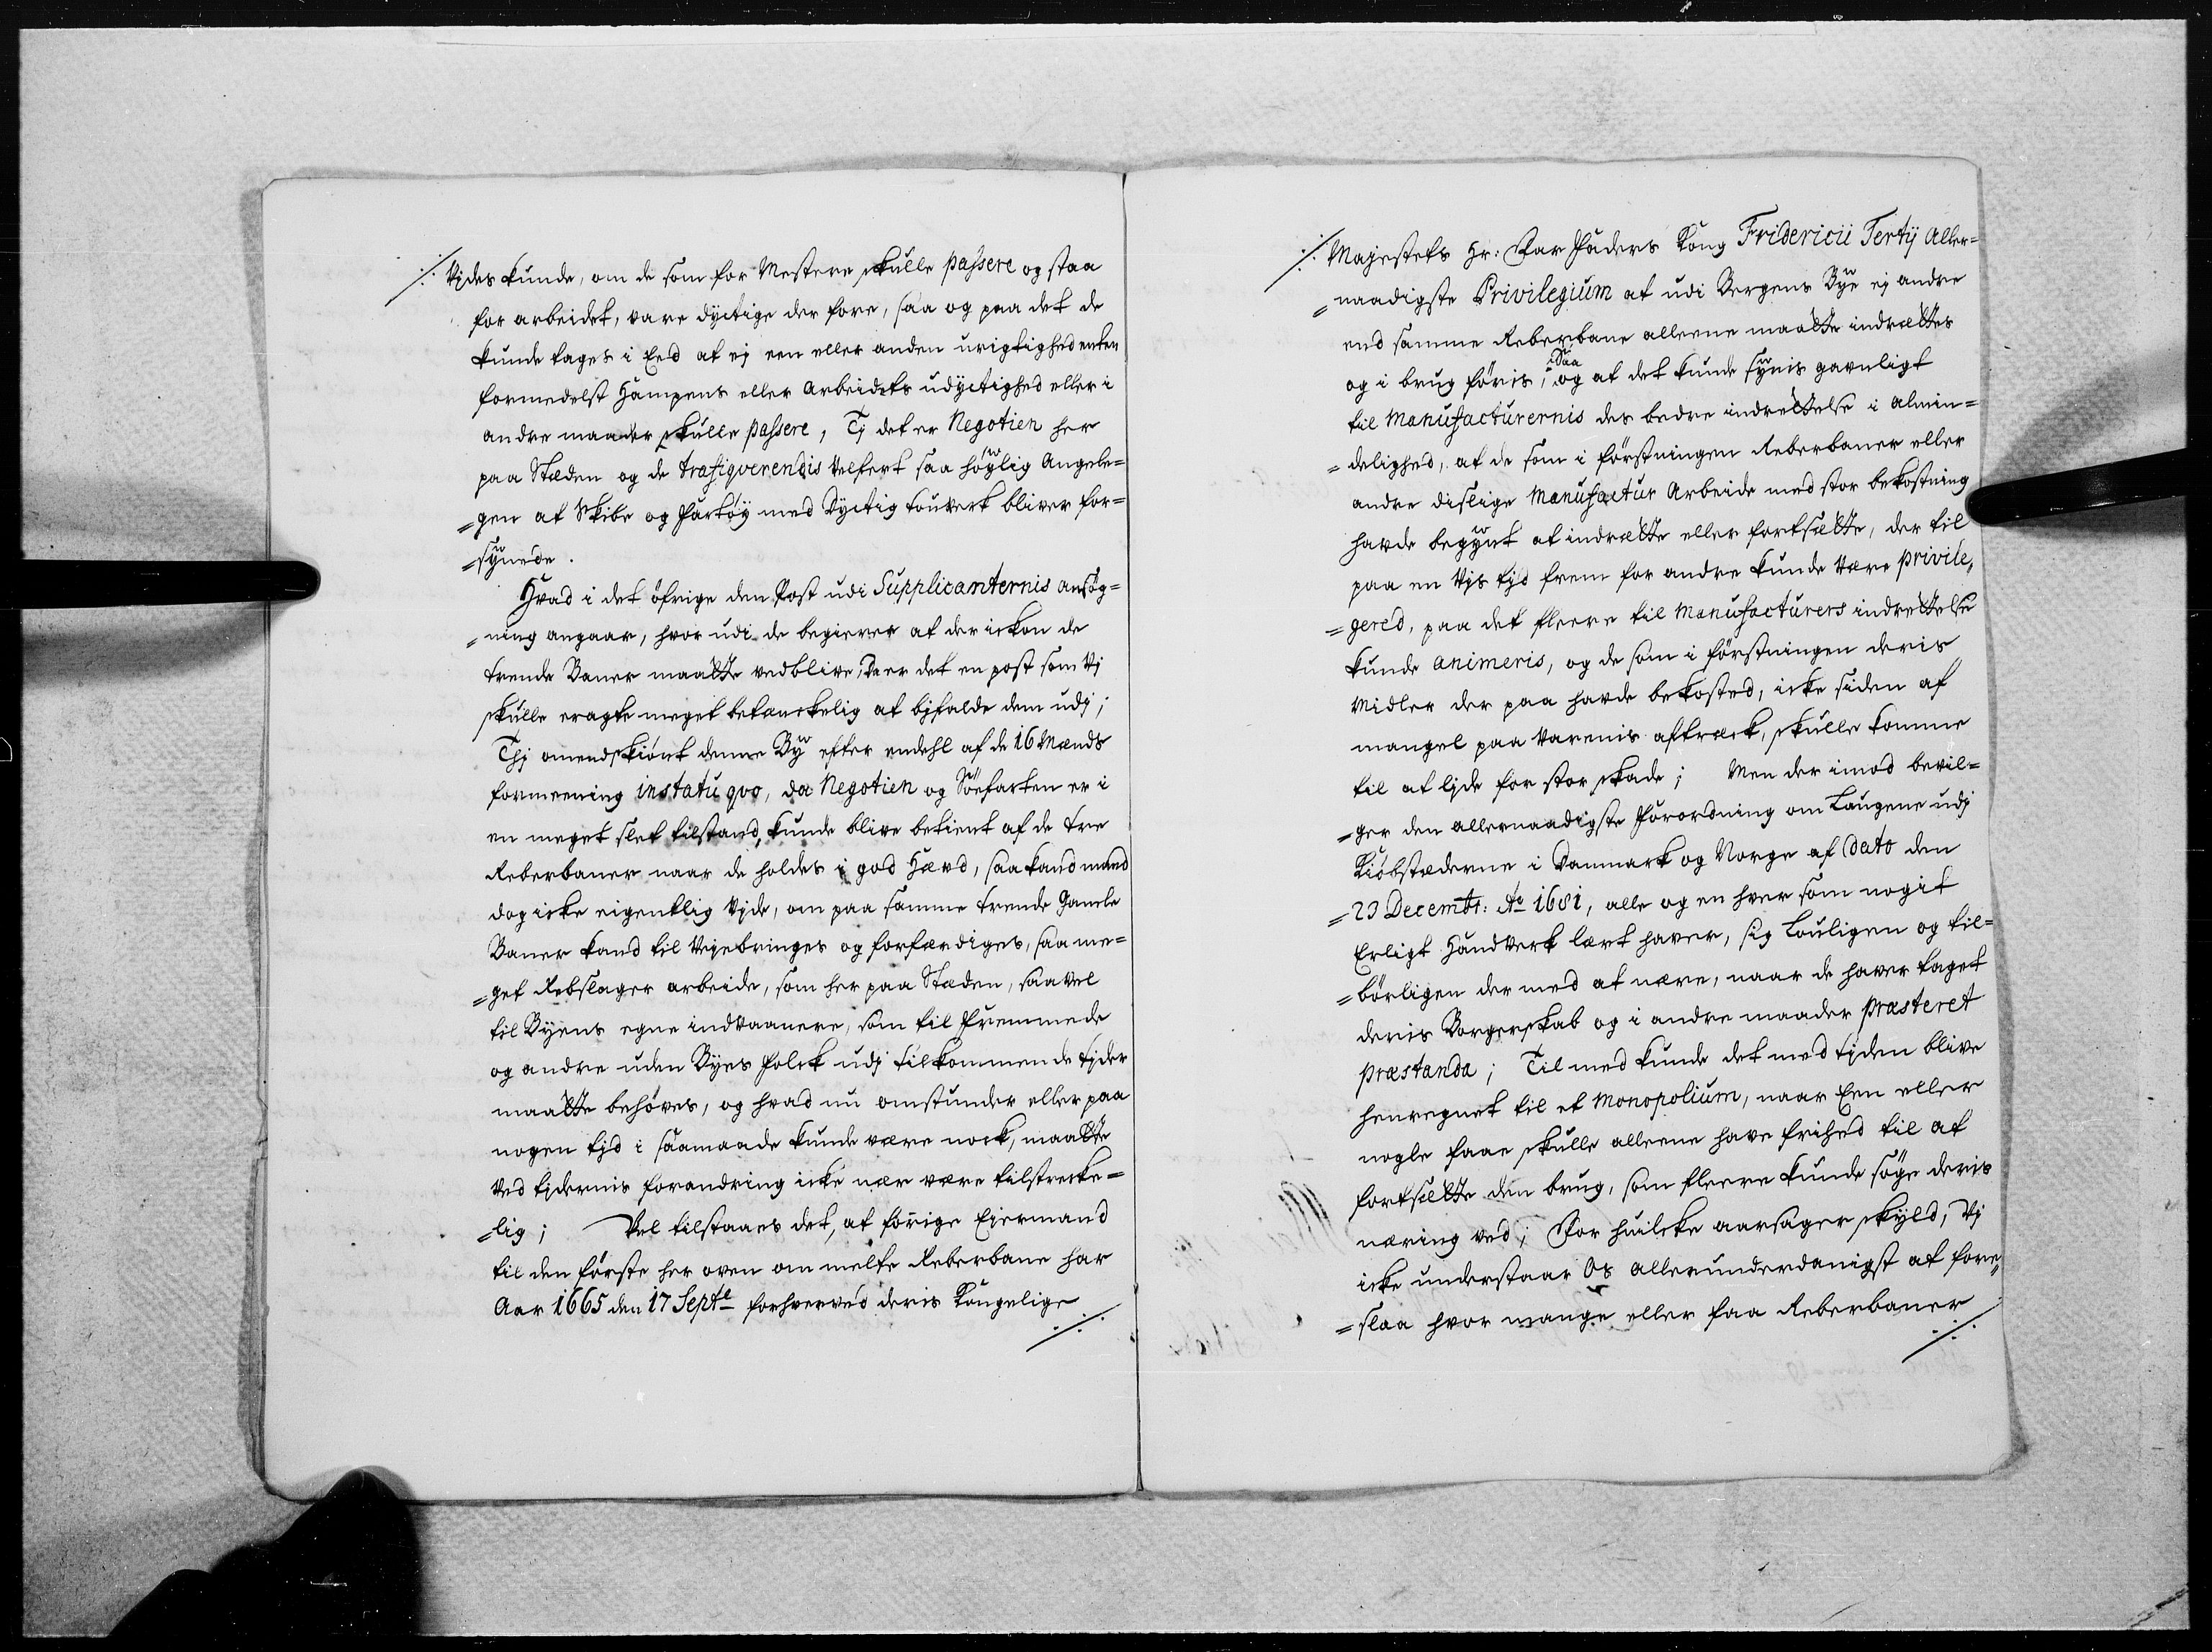 ⁒ Vides kunde, om de som for Mestere skulle passere og staa
for arbeidet, vare dyctige der fore, saa og paa det de
kunde tages i Eed at ej een eller anden urigtighed enten
formedelst Hampens eller Arbeidets udyctighed eller i
andre maader skulle passere, Tj det er Negotien her
paa Stæden og de trafiqverendis Velfert saa høylig Angele=
=gen at Skibe og Fartøy med Dyctig touverk bliver for=
=synede.
Hvad i det øfrige den Post udi Supplicanternis ansøg=
=ning angaar, hvor udi de begierer at der ickon de
trende Baner maatte vedblive, Da er det en post som Vj
skulle eragte meget betænckelig at bifalde dem udj;
Thj omendskiønt denne By efter endehl af de 16 Mænds
formeening in statu qvo, da Negotien og Søefarten er i
en meget slet tilstand, kunde blive betient af de tre
Reberbaner naar de holdes i god Hævd, saa kand mand
dog icke eigentlig Vide, om paa samme trende Gamle
Baner kand til Veyebringes og forfærdiges, saa me=
=get Rebslager arbeide, som her paa Stæden, saavel
til Byens egne indvaanere, som til Fremmede
og andre uden Byes Folck udj tilkommende tjder
maatte behøves, og hvad nu omstunder eller paa
nogen tjd i saamaade kunde være nock, maatte
ved tjdernis forandring icke nær være tilstrecke=
=lig; Vel tilstaaes det, at forige Eiermand
til den første her oven om melte Reberbane har
Aar 1665 den 17 Septe forhverved deris Kongelige
⁒
⁒ Majestets Hr: Far Faders Kong Fridericii Tertij Aller=
=naadigste Privilegium at udi Bergens Bye ej andre
end samme Reberbane alleene maatte indrettes
og i brug føris, Saa og at det kunde synis gavnligt
til Manufacturernis des bedre indrettelse i Almin=
=delighed, at de som i førstningen Reberbaner eller
andre dislige Manufactur Arbeide med stor bekostning
havde begynt at indrætte eller fortsætte, der til
paa en Vis tjd frem for andre kunde Være privile=
=gered, paa det fleere til Manufacturers indrettelse
kunde animeris, og de som i førstningen deris
Midler der paa havde bekosted, icke siden af
mangel paa Varenis aftræck, skulle komme
til at ljde for stor skade; Men der imod bevil=
=ger den allernaadigste Forordning om Laugene udj
Kiøbstæderne i Danmark og Norge af Dato den
=23 Decembr: Ao 1681, alle og en hver som nogit
Erligt Handverk lært haver, sig Louligen og til=
=børligen der med at nære, naar de haver taget
deris Borgerskab og i andre maader præsteret
præstanda; Til med kunde det med tjden blive
henregnet til et Monopolium, naar Een eller
nogle faae skulle alleene have frihed til at
fortsætte den brug, som fleere kunde søge deris
næring ved; For huilcke aarsager skyld, Vj
icke understaar Os allerunderdanigst at fore=
=slaa hvor mange eller faa Reberbaner
⁒